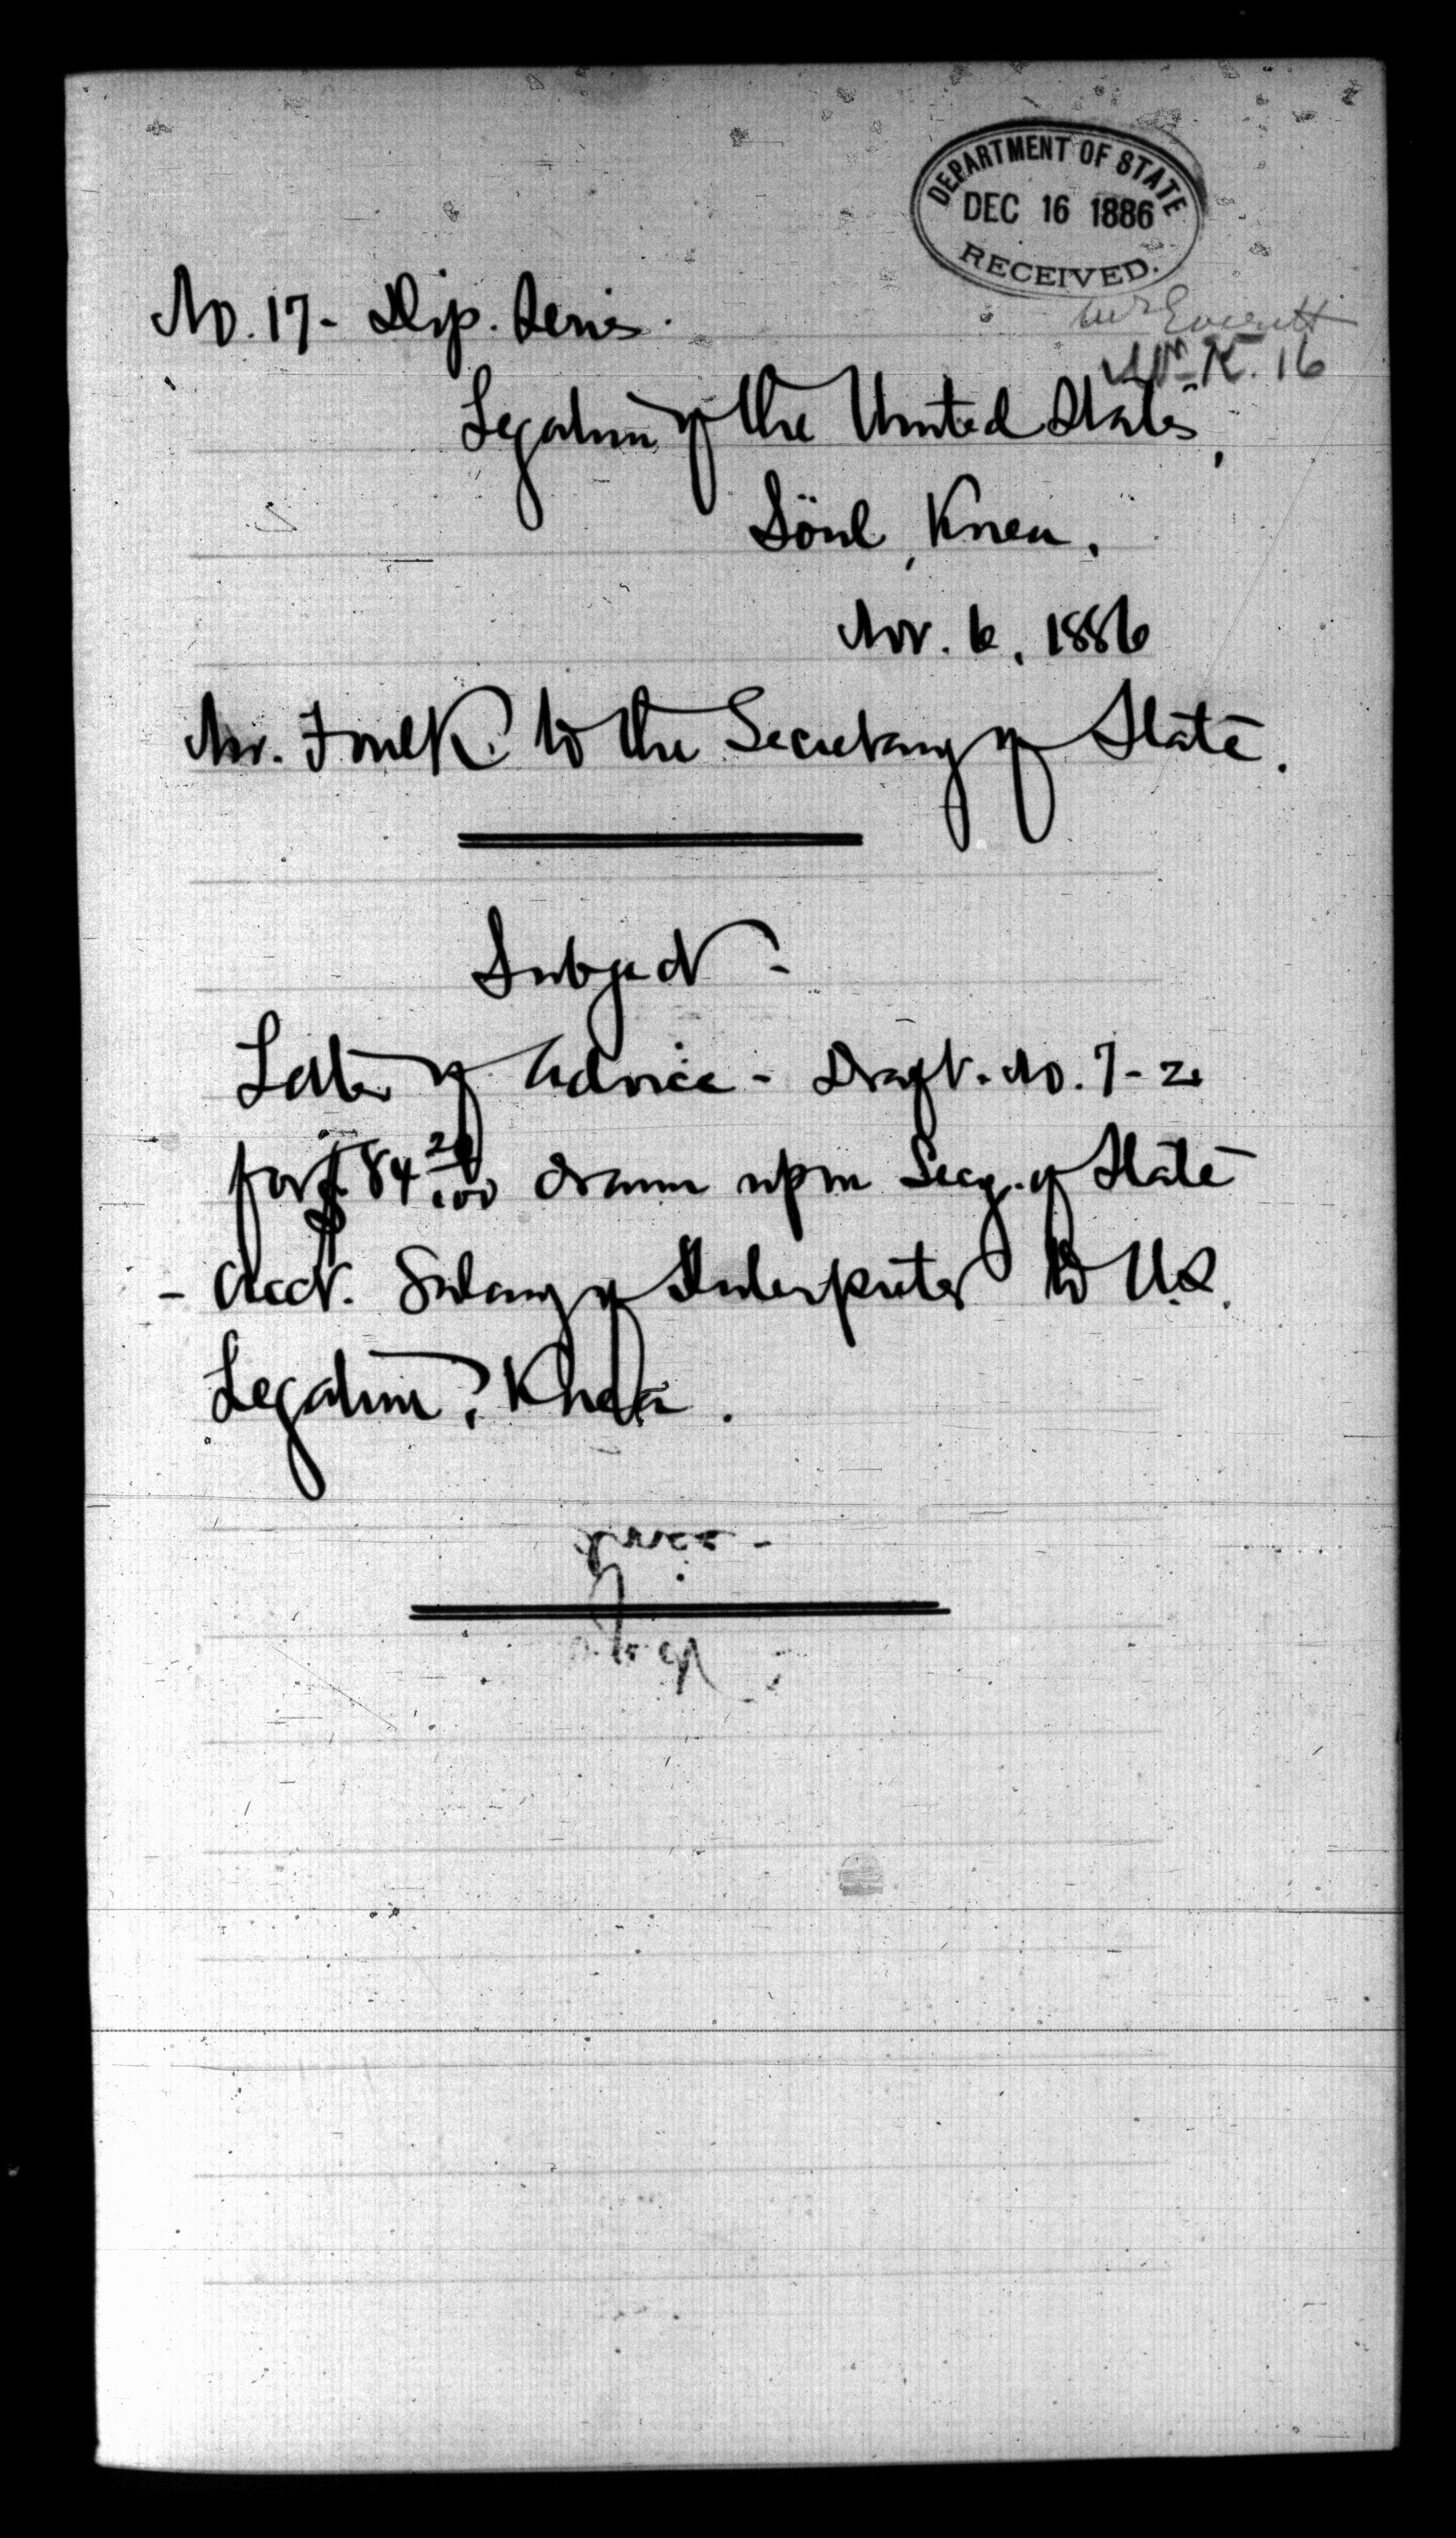 DEPARTMENT OF STATE
DEC 16 1886
RECEIVED.
Mr Everett
Mr. K. 16
No. 17 - Dip. Series.
Legation of the United States,
Söul, Korea.
Nov. 6, 1886
Mr. Foulk to the Secretary of State.
Subject -
Letter of Advice - Draft. No. 7-2
for $84 100 drawn upon Secy. of State
- Acct. Salary of Interpreter to U.S.
Legation, Korea.